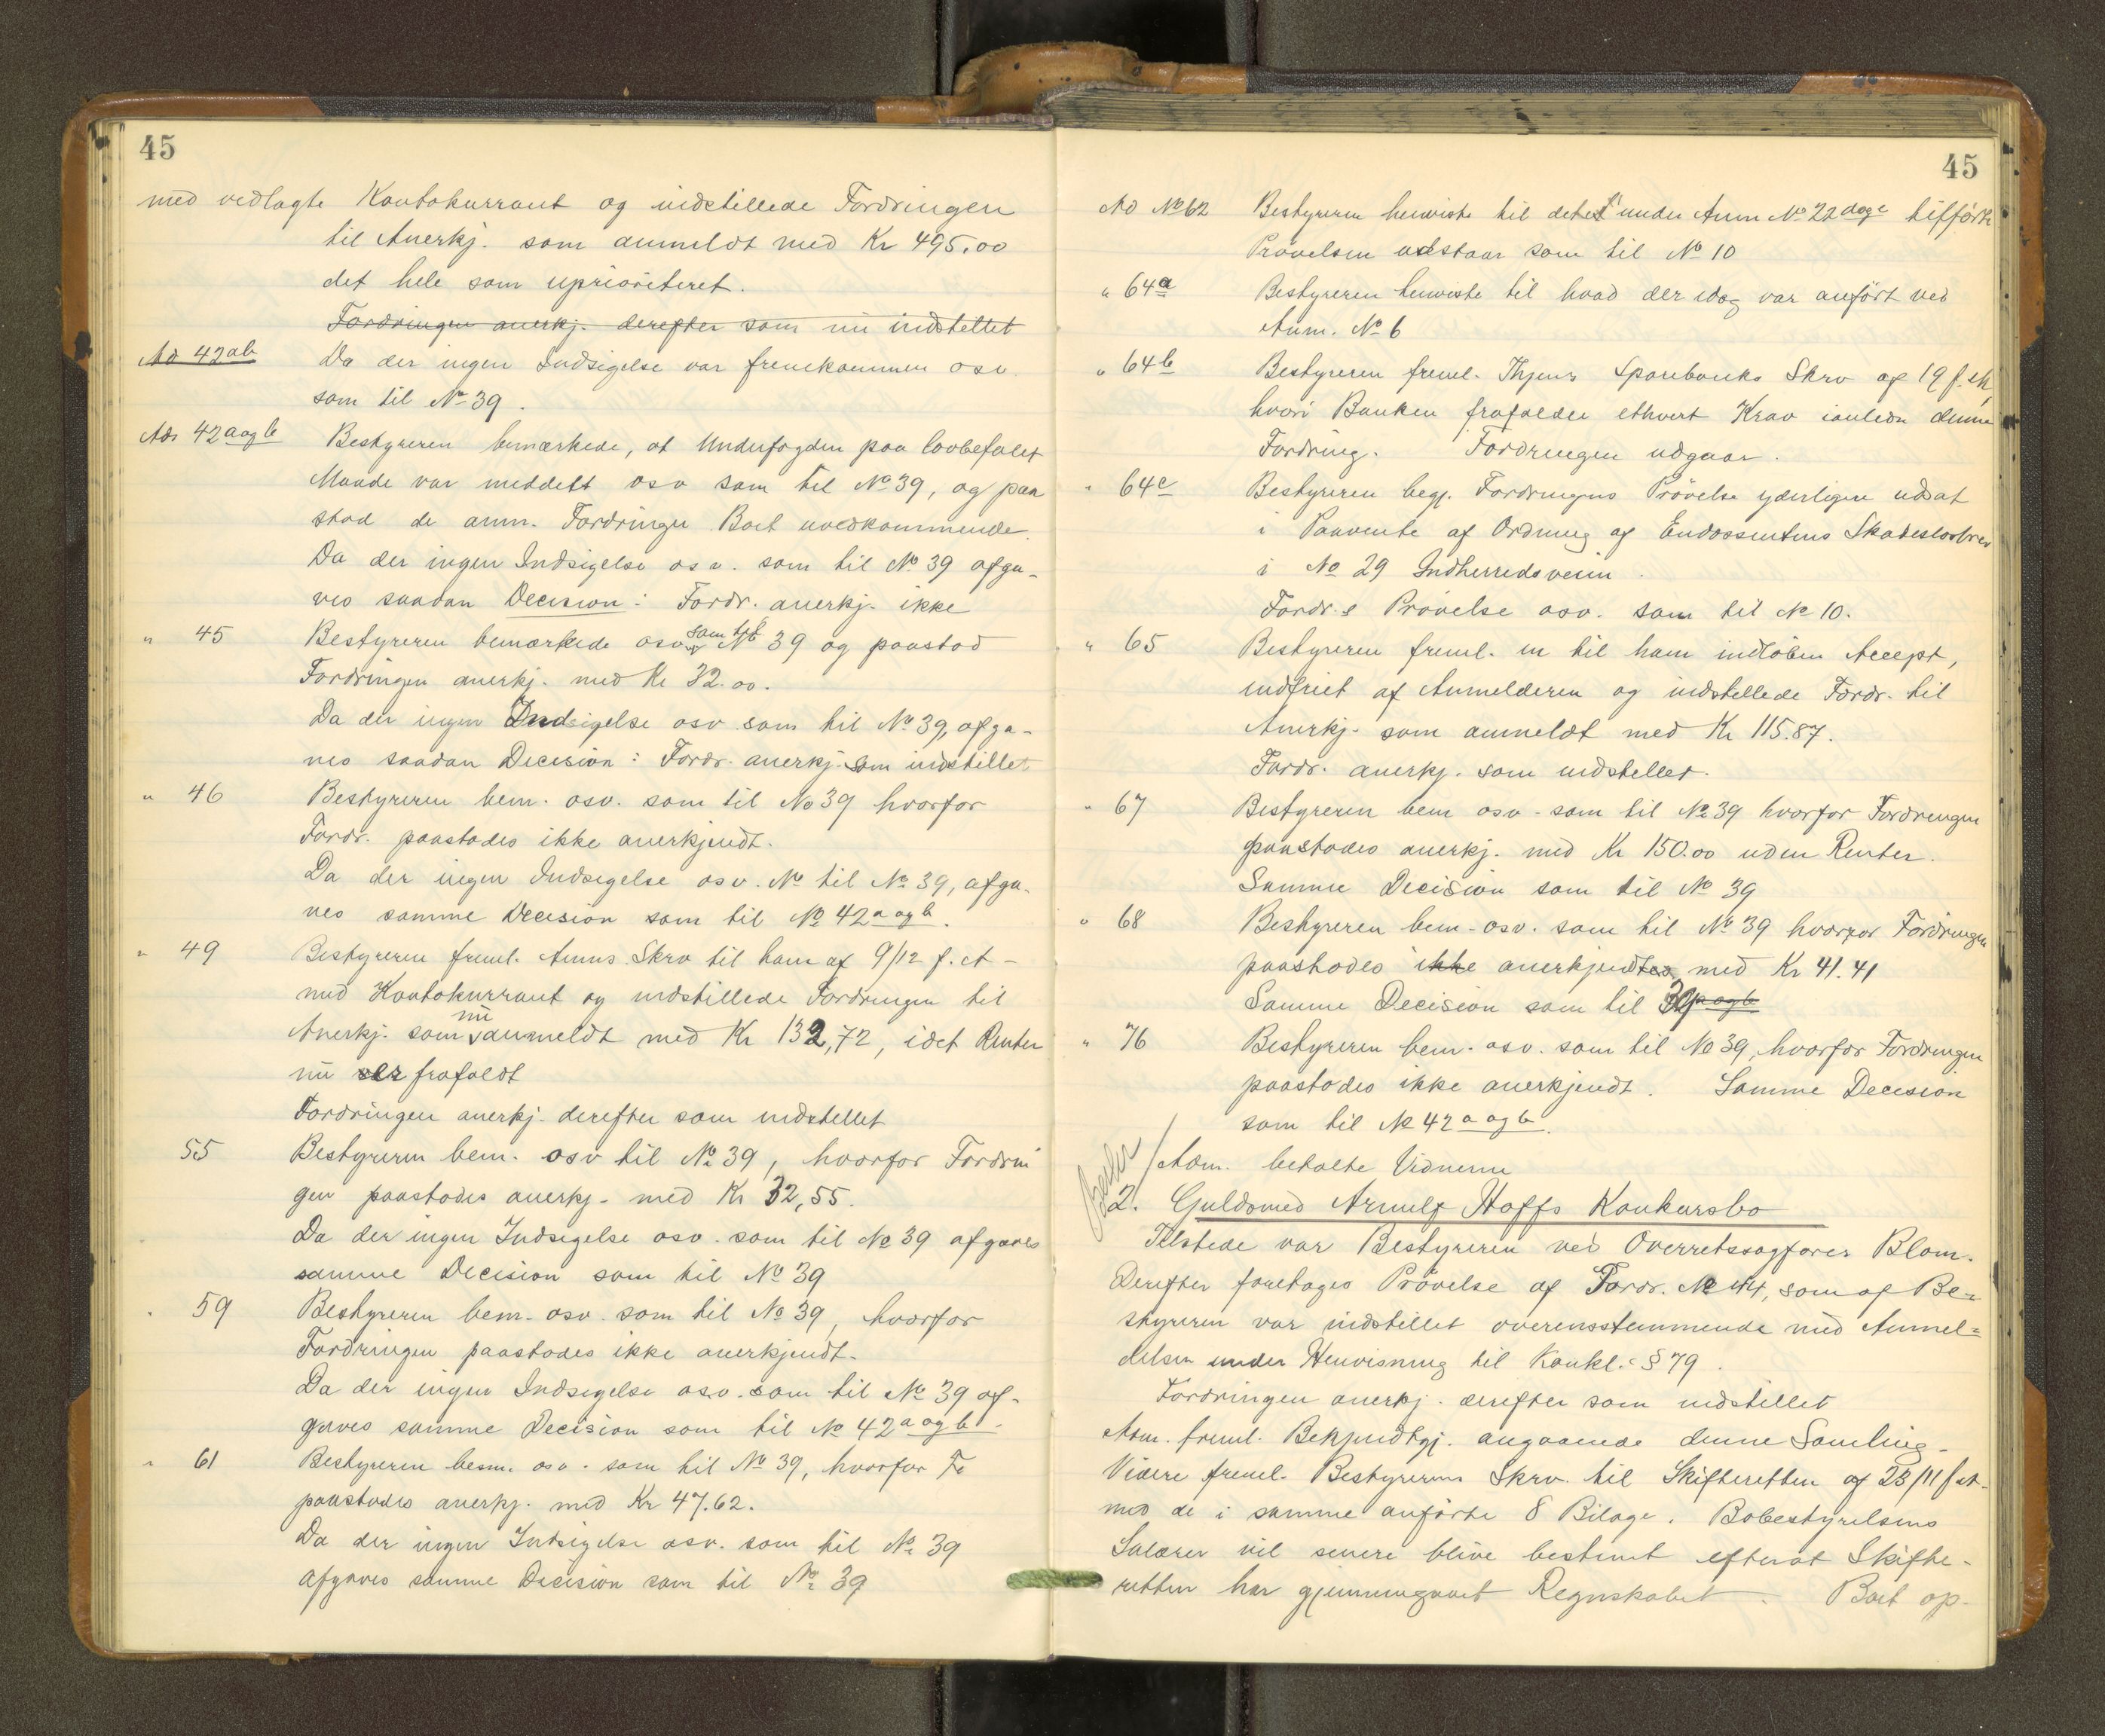 45
med vedlagte Kontokurrant og indstillede Fordringen
til Anerkj. som anmeldt med Kr 495.00
det hele som uprioriteret.
Fordringen anerkj. derefter som nu indstellet
Ad 42ab Da der ingen Indsigelse var fremkommen osv.
som til No 39.
Ad 42a og b Bestyreren bemærkede, at Underfogden paa lovbefalet
Maade var meddelt osv som til No 39, og paa
stod de anm. Fordringer Boet uvedkommende.
Da der ingen Indsigelse osv. som til No 39 afga-
ves saadan Decision: Fordr. anerkj. ikke
" 45 Bestyreren bemærkede osv som til No 39 og paastod
Fordringen anerkj. med Kr 32.00.
Da der ingen Indsigelse osv. som til No 39, afga-
ves saadan Decision: Fordr. anerkj. som indstillet
" 46 Bestyreren bem. osv. som til No 39 hvorfor
Fordr. paastodes ikke anerkjendt.
Da der ingen Indsigelse osv. No til No 39, afga-
ves samme Decision som til No 42 a og b.
" 49 Bestyreren freml. Anms Skrv til ham af 9/12 f. A -
med Kontokurrant og indstillede Fordringen til
Anerkj. som nu anmeldt med Kr 132,72, idet Renter
nu er frafaldt
Fordringen anerkj. derefter som indstellet
55 Bestyreren bem. osv til No 39, hvorfor Fordrin
gen paastodes anerkj. med Kr 32,55.
Da der ingen Indsigelse osv. som til No 39 afgaves
samme Decision som til No 39
" 59 Bestyreren bem. osv. som til No 39, hvorfor
Fordringen paastodes ikke anerkjendt.
Da der ingen Indsigelse osv. som til No 39 af-
gaves samme Decision som til No 42 a og b.
" 61 Bestyreren bem. osv. som til No 39, hvorfor Fo
paastodes anerkj. med Kr 47.62.
Da der ingen Indsigelse osv. som til No 39
afgaves samme Decision som til No 39
45
Ad No 62 Bestyreren henviste til det under Anm No 22 tilførte
Prøvelsen udstaar som til No 10
" 64a Bestyreren henviste til hvad der idag var anført ved
Anm. No 6
" 64b Bestyreren freml. Sparebanks Skrv af 19 f.
hvori Banken frafalder ethvert Krav ianledn denne
Fordring. Fordringen udgaar.
" 64c Bestyreren begj. Fordringens Prøvelse yderligere udsat
i Paavente af Ordning af Endossentens Skadesløsbrev
i No 29 Indherredsveien.
Fordr.s Prøvelse osv. som til No 10.
" 65 Bestyreren freml. en til ham indløben Accept,
indfriet af Anmelderen og indstellede Fordr. til
Anerkj. som anmeldt med Kr 115.87.
Fordr. anerkj. som indstellet.
" 67 Bestyreren bem osv. som til No 39 hvorfor Fordringen
paastodes anerkj. med Kr 150.00 uden Renter.
Samme Decision som til No 39
" 68 Bestyreren bem. osv. som til No 39 hvorfor Fordringen
paastodes ikke anerkjendtes, med Kr 41.41
Samme Decision som til 39 a og b
" 76 Bestyreren bem. osv. som til No 39, hvorfor Fordringen
paastodes ikke anerkjendt. Samme Decision
som til No 42 a og b.
Adm. betalte Vidnerne
2. Guldsmed Arnulf Hoffs Konkursbo
Tilstede var Bestyreren ved Overretssagfører Blom.
Derefter foretages Prøvelse af Fordr. No 44, som af Be-
styreren var indstillet overensstemmende med Anmel-
delsen under Henvisning til Konkl. § 79.
Fordringen anerkj. derefter som indstillet
Adm. freml. Bekjendtgj. angaaende denne Samling.
Videre freml. Bestyrerens Skrv. til Skifteretten af 23/11 f. A.
med de i samme anførte 8 Bilage. Bobestyrelsens
Salærer vil senere blive bestemt efterat Skifte-
retten har gjennemgaaet Regnskabet. Boet op-